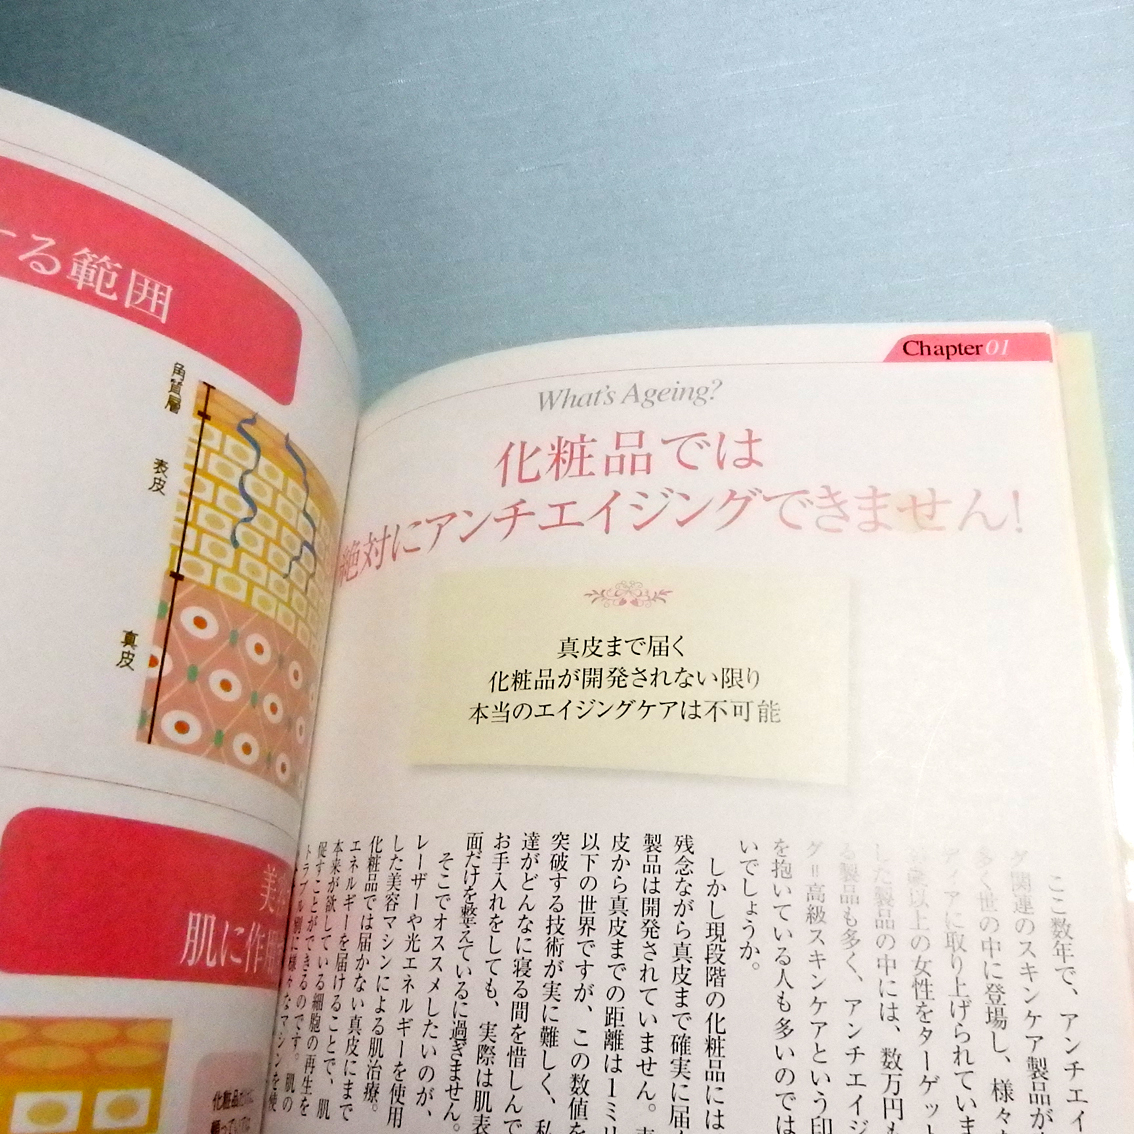 する範囲
角質層
表皮
真皮
肌に作用
Chapter 01
What's Ageing?
化粧品では
絶対にアンチエイジングできません!
真皮まで届く
化粧品が開発されない限り
本当のエイジングケアは不可能
ここ数年で、アンチエイ
グ関連のスキンケア製品が
多く世の中に登場し、様々
ディアに取り上げられていま
歳以上の女性をターゲット
した製品の中には、数万円も
る製品も多く、アンチエイジ
グ=高級スキンケアという印
を抱いている人も多いのでは
いでしょうか。
しかし現段階の化粧品には
残念ながら真皮まで確実に届
製品は開発されていません。
皮から真皮までの距離は1ミリ
以下の世界ですが、この数値を
突破する技術が実に難しく、私
達がどんなに寝る間を惜しんで
お手入れをしても、実際は肌表
面だけを整えているに過ぎません。
そこでオススメしたいのが、
レーザーや光エネルギーを使用
した美容マシンによる肌治療。
化粧品では届かない真皮にまで
エネルギーを届けることで、肌
本来が欲している細胞の再生を
促すことができるのです。肌の
トラブル別に様々なマシンを使